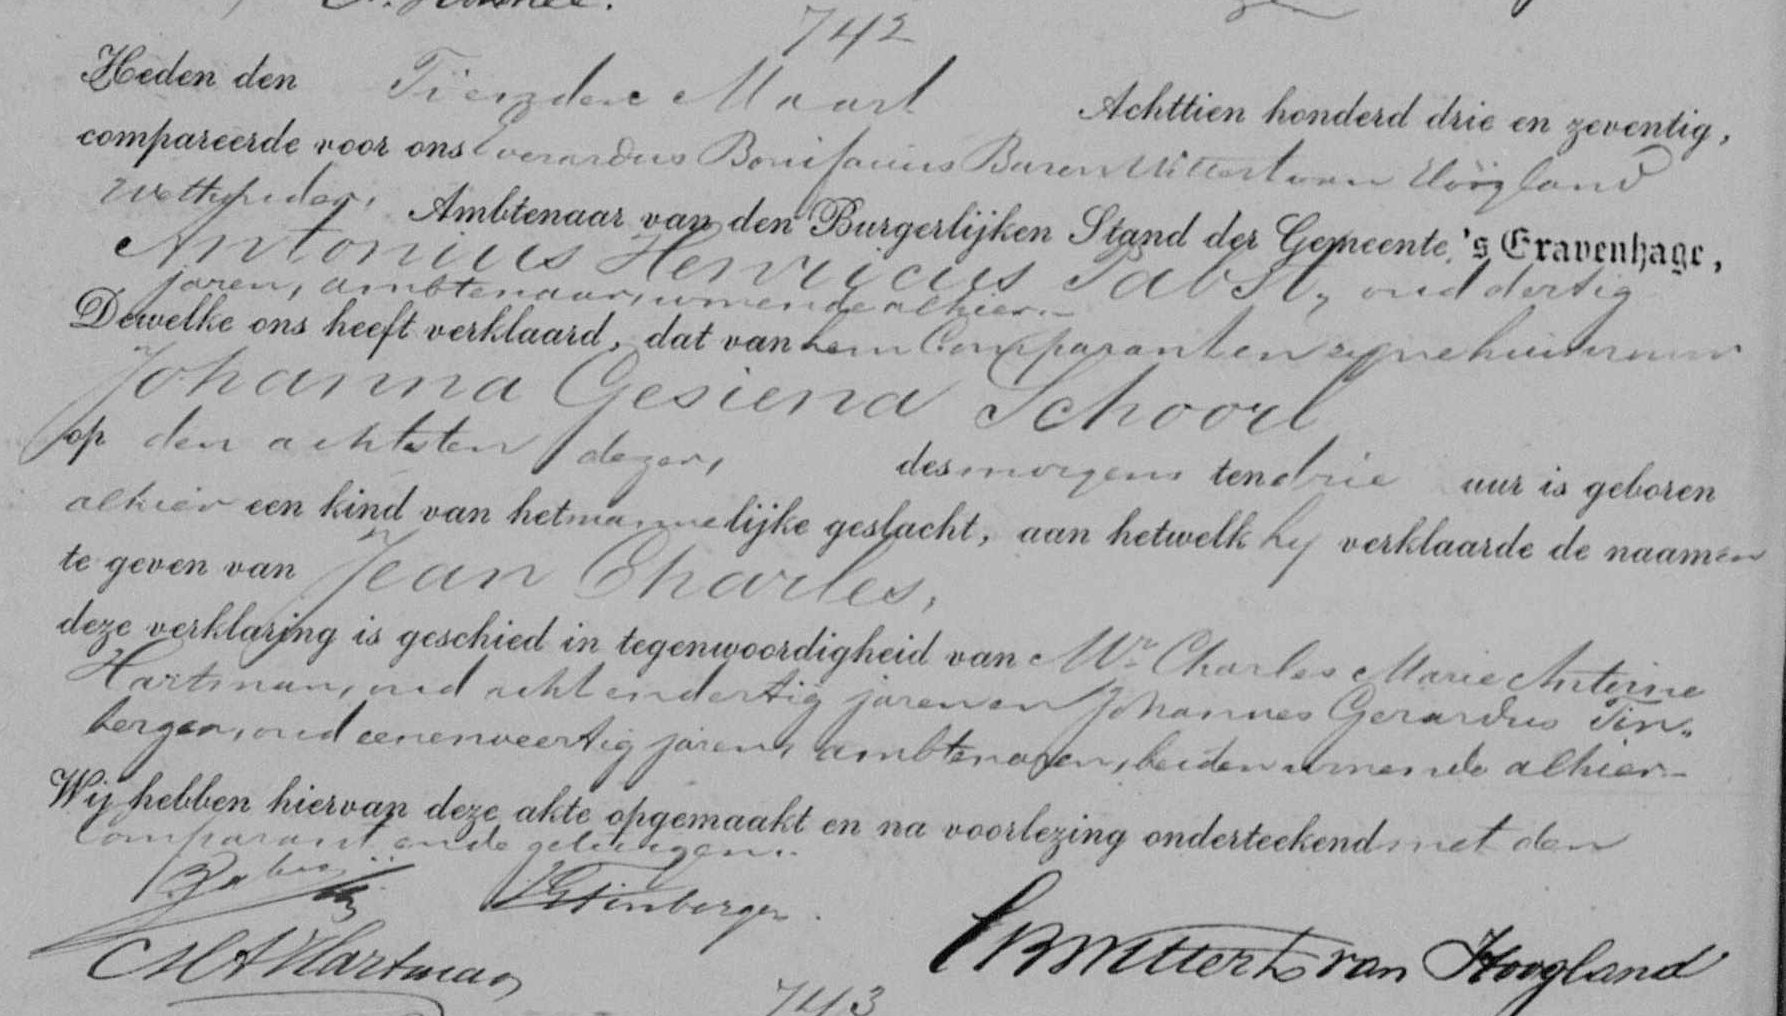 742
Heden den Tienden Maart Achttien honderd drie en zeventig,
compareerde voor ons Everardus Bonifacius Baron Wittert van Hoogland
Wethouder, Ambtenaar van den Burgerlijken Stand der Gemeente 's Gravenhage,
Antonius Henricus Pabst, oud dertig
jaren, ambtenaar, wonende alhier.
Dewelke ons heeft verklaard, dat van hem Comparant en zijne huisvrouw
Johanna Gesiena Schoorl
op den achtsten dezer, des morgens ten drie uur is geboren
alhier een kind van het mannelijke geslacht, aan hetwelk hij verklaarde de naamen
te geven van Jean Charles,
deze verklaring is geschied in tegenwoordigheid van Mr. Charles Marie Antoine
Hartman, oud acht en dertig jaren en Johannes Gerardus Tin„
bergen, oud eenenveertig jaren, ambtenaren, beiden wonende alhier
Wij hebben hiervan deze akte opgemaakt en na voorlezing onderteekend met den
Comparant en de getuigen.
JGTinbergen.
CMAHartman
EBWittert van Hoogland
743